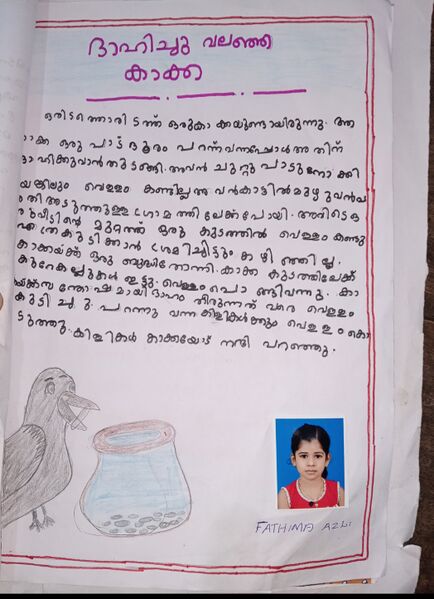 ദാഹിച്ചു വലഞ്ഞ
കാക്ക
ഒരിടത്തൊരിടത്ത് ഒരുകാക്കയുണ്ടായിരുന്നു. ആ
കാക്ക ഒരുപാട്ദൂരം പറന്ന്വന്നപ്പോൾഅതിന്
ദാഹിക്കുവാൻതുടങ്ങി.അവൻ ചുറ്റുപാടുനോക്കി
യെങ്കിലും വെള്ളം കണ്ടില്ല അവൻകാട്ടിൽമുഴുവൻ
അടുത്തുള്ള ഗ്രാമത്തിലേക്ക്പോയി. അവിടെഒ
രുവീട്ടിന്റെ മുറ്റത്ത് ഒരു കുടത്തിൽ വെള്ളം കണ്ടു
എത്രകുടിക്കാൻ ശ്രമിച്ചിട്ടും കഴിഞ്ഞില്ല.
കാക്കയ്ക്ക് ഒരു ബുദ്ധിതോന്നി. കാക്ക കുടത്തിലേക്ക്
കുറേകല്ലുകൾ ഇട്ടു. വെള്ളംപൊങ്ങിവന്നു. കാ
സന്തോഷമായി ദാഹം തീരുന്നത് വരെ വെള്ളം
കുടിച്ചു. പറന്നു വന്ന കിളികൾക്കും വെള്ളം കൊ
ടുത്തു. കിളികൾ കാക്കയോട് നന്ദി പറഞ്ഞു.
FATHIMA AZLI